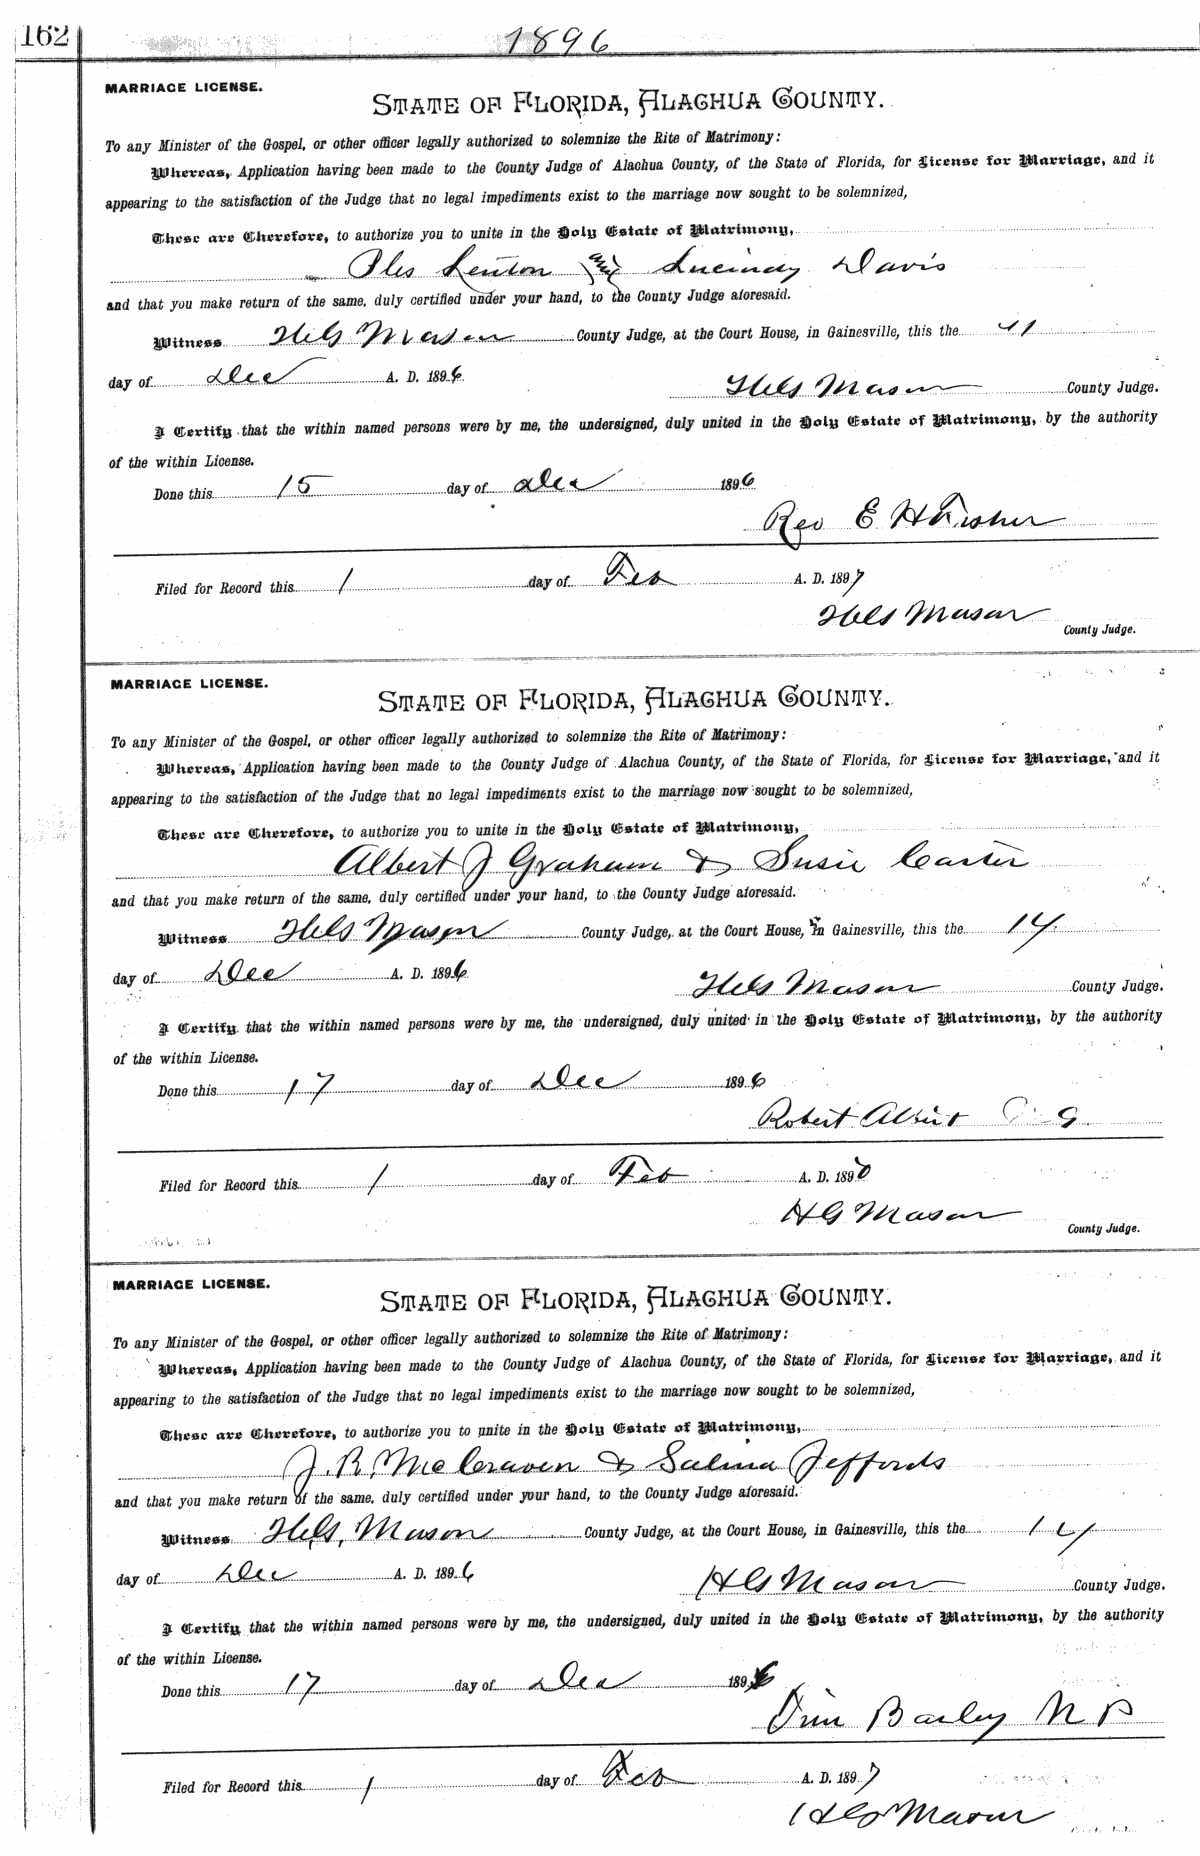 162
1896
MARRIAGE LICENSE.
STATE OF FLORIDA, ALACHUA COUNTY.
To any Minister of the Gospel, or other officer legally authorized to solemnize the Rite of Matrimony:
Whereas, Application having been made to the County Judge of Alachua County, of the State of Florida, for License for Marriage, and it
appearing to the satisfaction of the Judge that no legal impediments exist to the marriage now sought to be solemnized,
These are Therefore, to authorize you to unite in the Holy Estate of Matrimony,
Ples Lenton and Lucinday Davis
and that you make return of the same, duly certified under your hand, to the County Judge aforesaid.
Witness H G Mason County Judge, at the Court House, in Gainesville, this the
day of Dec A. D. 1896 H G Mason County Judge.
I Certify that the within named persons were by me, the undersigned, duly united in the Holy Estate of Matrimony, by the authority
of the within License.
Done this 15 day of Dec 1896
Rev E H Fisher
Filed for Record this 1 day of Feb A. D. 1897
H G Mason
County Judge.
MARRIAGE LICENSE.
STATE OF FLORIDA, ALACHUA COUNTY.
To any Minister of the Gospel, or other officer legally authorized to solemnize the Rite of Matrimony:
Whereas, Application having been made to the County Judge of Alachua County, of the State of Florida, for License for Marriage, and it
appearing to the satisfaction of the Judge that no legal impediments exist to the marriage now sought to be solemnized,
These are Therefore, to authorize you to unite in the Holy Estate of Matrimony,
Albert J Graham & Susie Carter
and that you make return of the same, duly certified under your hand, to the County Judge aforesaid.
Witness H G Mason County Judge, at the Court House, in Gainesville, this the 14
day of Dec A. D. 1896 H G Mason County Judge.
I Certify that the within named persons were by me, the undersigned, duly united in the Holy Estate of Matrimony, by the authority
of the within License.
Done this 17 day of Dec 1896
Robert Albert
Filed for Record this 1 day of Feb A. D. 189
H G Mason
County Judge.
MARRIAGE LICENSE.
STATE OF FLORIDA, ALACHUA COUNTY.
To any Minister of the Gospel, or other officer legally authorized to solemnize the Rite of Matrimony:
Whereas, Application having been made to the County Judge of Alachua County, of the State of Florida, for License for Marriage, and it
appearing to the satisfaction of the Judge that no legal impediments exist to the marriage now sought to be solemnized,
These are Therefore, to authorize you to unite in the Holy Estate of Matrimony,
J. R. McCraven & Salina Jeffords
and that you make return of the same, duly certified under your hand, to the County Judge aforesaid.
Witness H. G. Mason County Judge, at the Court House, in Gainesville, this the 14
day of Dec A. D. 1896 H G Mason County Judge.
I Certify that the within named persons were by me, the undersigned, duly united in the Holy Estate of Matrimony, by the authority
of the within License.
Done this 17 day of Dec 1896
Barley N P
Filed for Record this 1 day of Feb A. D. 1897
H G Mason